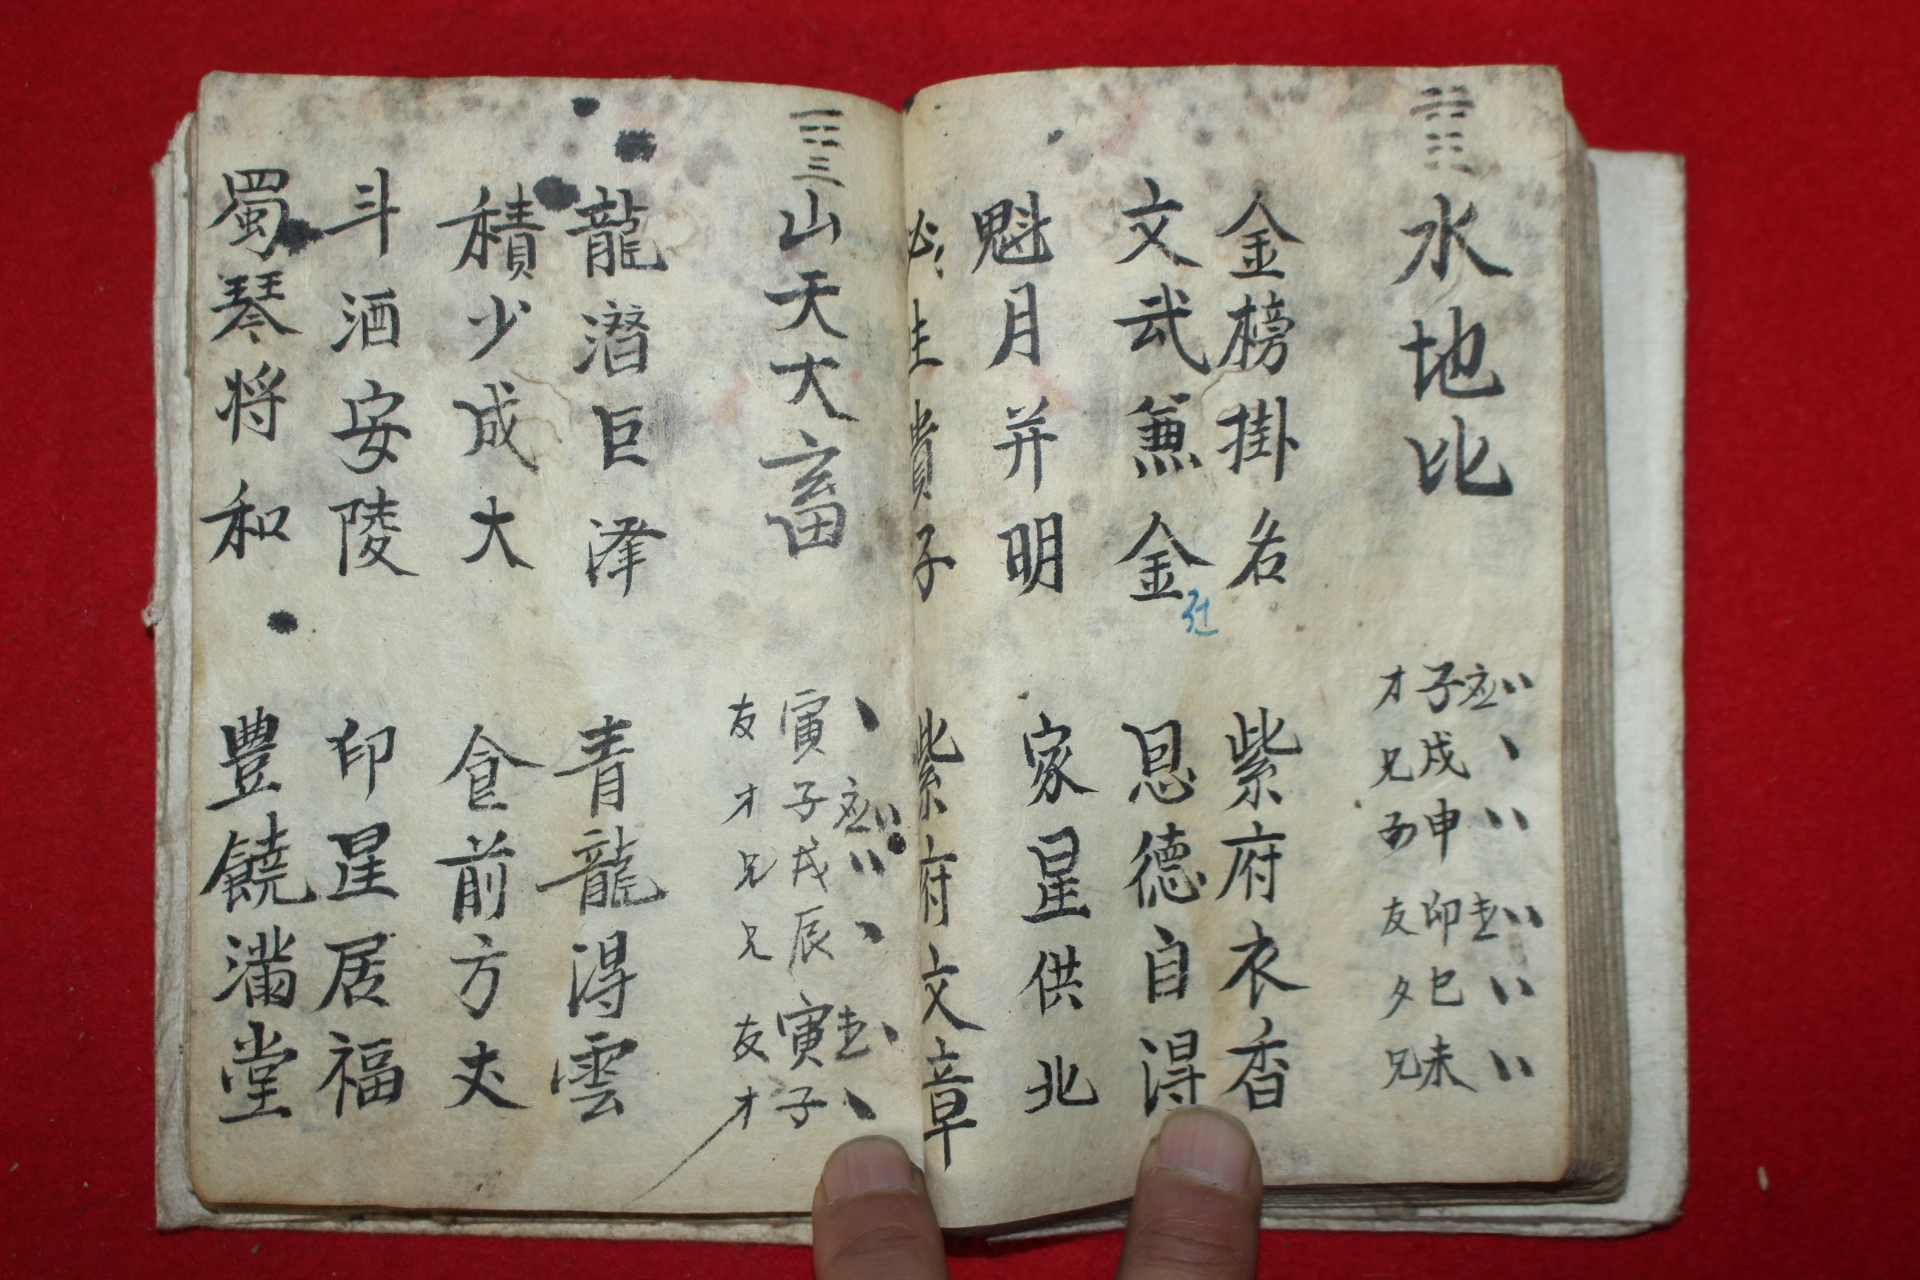 水地比
子應
戌
申
卯世
巳
未
才
兄
友
兄
金榜掛名 紫府衣香
文武兼金 恩德自得
魁月并明 家星供北
必生貴子 紫府文章
山天大畜
寅
子應
戌
辰
寅世
子
友
才
兄
兄
友
才
龍潛巨澤 青龍得雲
積少成大 食前方丈
斗酒安陵 印星居福
蜀琴将和 豊饒滿堂